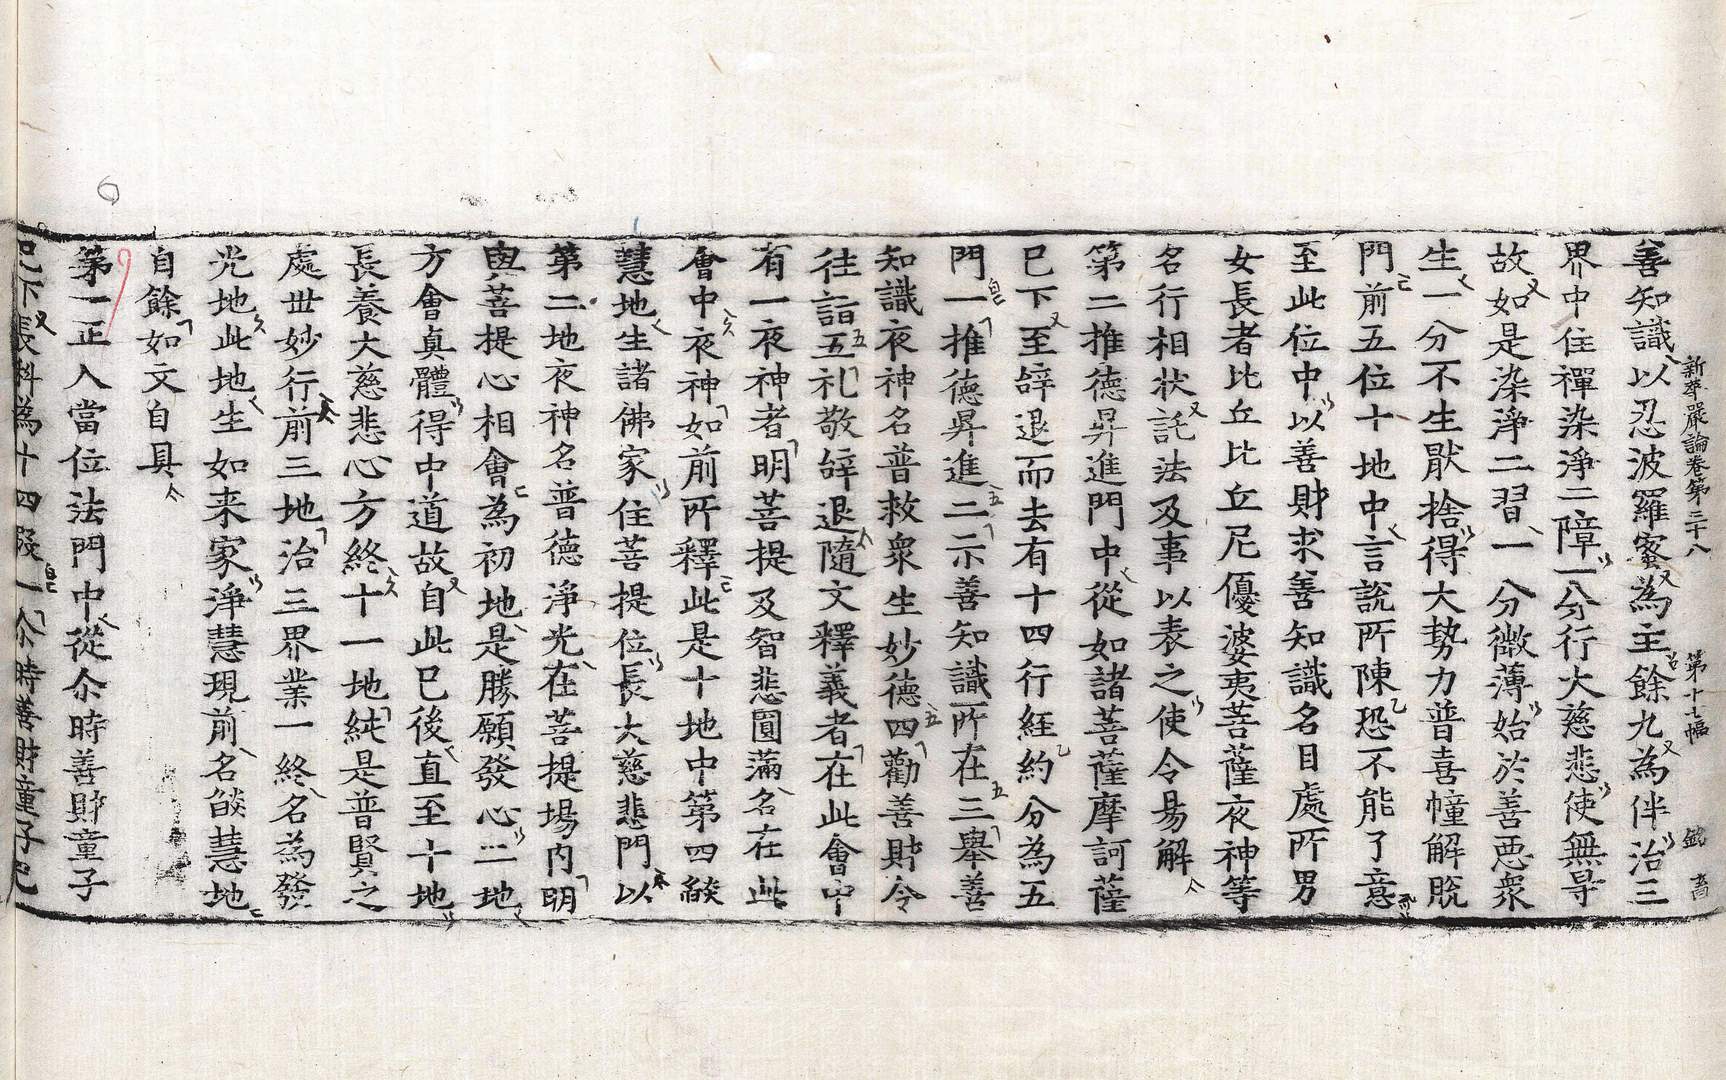 新華嚴論卷第三十八　第十七幅　銘　耆
善知識以忍波羅蜜為主餘九為伴治三
界中住禪染淨二障一分行大慈悲使無㝵
故如是染淨二習一分微薄始於善惡眾
生一分不生厭捨得大勢力普喜幢解脫
門前五位十地中言說所陳恐不能了意
至此位中以善財求善知識名目處所男
女長者比丘比丘尼優婆夷菩薩夜神等
名行相狀託法及事以表之使令易解
第二推德昇進門中從如諸菩薩摩訶薩
已下至辝退而去有十四行経約分為五
門一推德昇進二示善知識所在三舉善
知識夜神名普救眾生妙德四勸善財令
往詣五礼敬辝退隨文釋義者在此會中
有一夜神者明菩提及智悲圓滿名在此
會中夜神如前所釋此是十地中第四燄
慧地生諸佛家住菩提位長大慈悲門以
第二地夜神名普德淨光在菩提場內明
與菩提心相會為初地是勝願發心二地
方會真體得中道故自此已後直至十地
長養大慈悲心方終十一地純是普賢之
處世妙行前三地治三界業一終名為發
光地此地生如来家淨慧現前名燄慧地
自餘如文自具
第一正入當位法門中從尒時善財童子
已下長科為十四段一尒時善財童子已